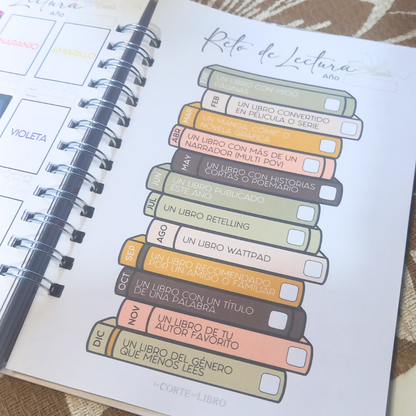 Lectura
AÑO
NARANJO
AMARILLO
VIOLETA
Reto de Lectura
AÑO
UN LIBRO CON
PÁGINAS
FEB
UN LIBRO CONVERTIDO
EN PELÍCULA O SERIE
MAR
UN MANGA, CÓMIC O
NOVELA GRÁFICA
ABR
UN LIBRO CON MÁS DE UN
NARRADOR (MULTI POV)
MAY
UN LIBRO CON HISTORIAS
CORTAS O POEMARIO
JUN
UN LIBRO PUBLICADO
ESTE AÑO
JUL
UN LIBRO RETELLING
AGO
UN LIBRO WATTPAD
SEP
UN LIBRO RECOMENDADO
POR UN AMIGO O FAMILIAR
OCT
UN LIBRO CON UN TÍTULO
DE UNA PALABRA
NOV
UN LIBRO DE TU
AUTOR FAVORITO
DIC
UN LIBRO DEL GÉNERO
QUE MENOS LEES
CORTE LIBRO